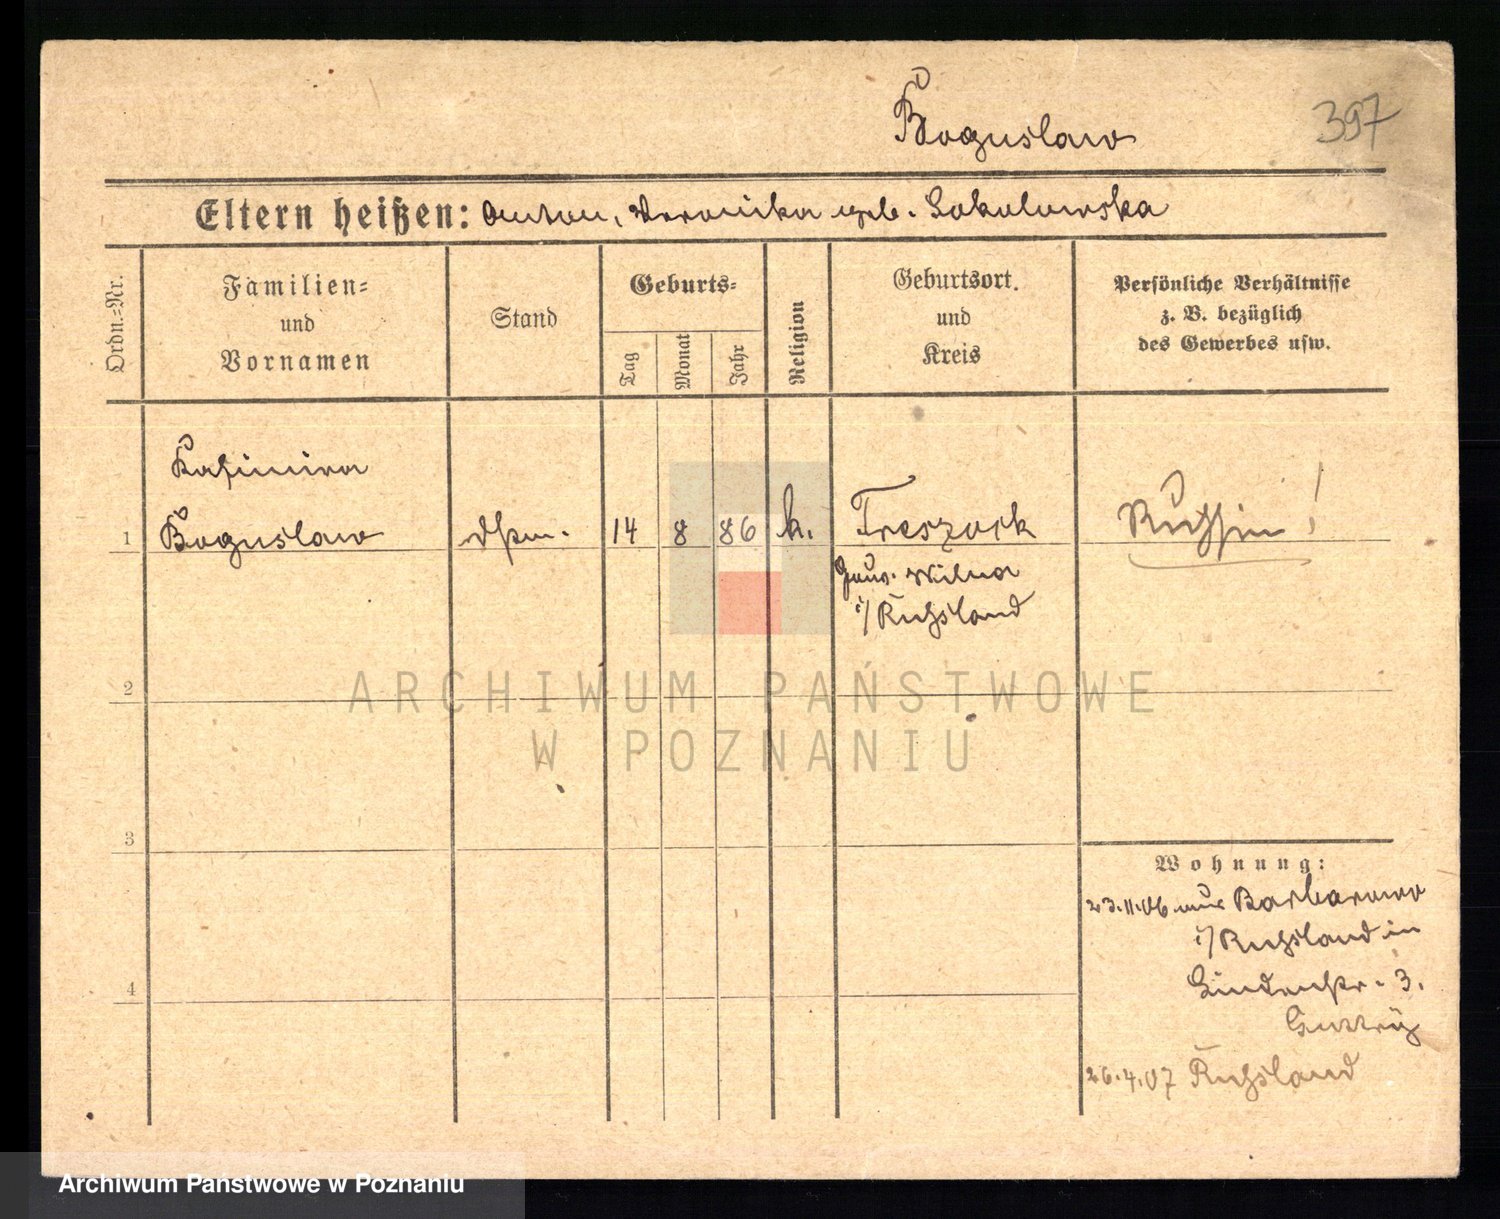 Boguslaw
397
Eltern heißen: Anton, Veronika geb. Sokolowska
Ordn.-Nr.
Familien-
und
Vornamen
Stand
Geburts-
Tag
Monat
Jahr
Religion
Geburtsort
und
Kreis
Persönliche Verhältnisse
z. B. bezüglich
des Gewerbes usw.
Kasimira
1 Boguslaw 14 8 86 k. Russin!
Gouv. Wilna
i/Rußland
2
ARCHIWUM PAŃSTWOWE
W POZNANIU
3
Wohnung:
23.11.06 aus Barbarowo
i/Rußland in
Lindenstr. 3.
4
26.4.07 Rußland
Archiwum Państwowe w Poznaniu